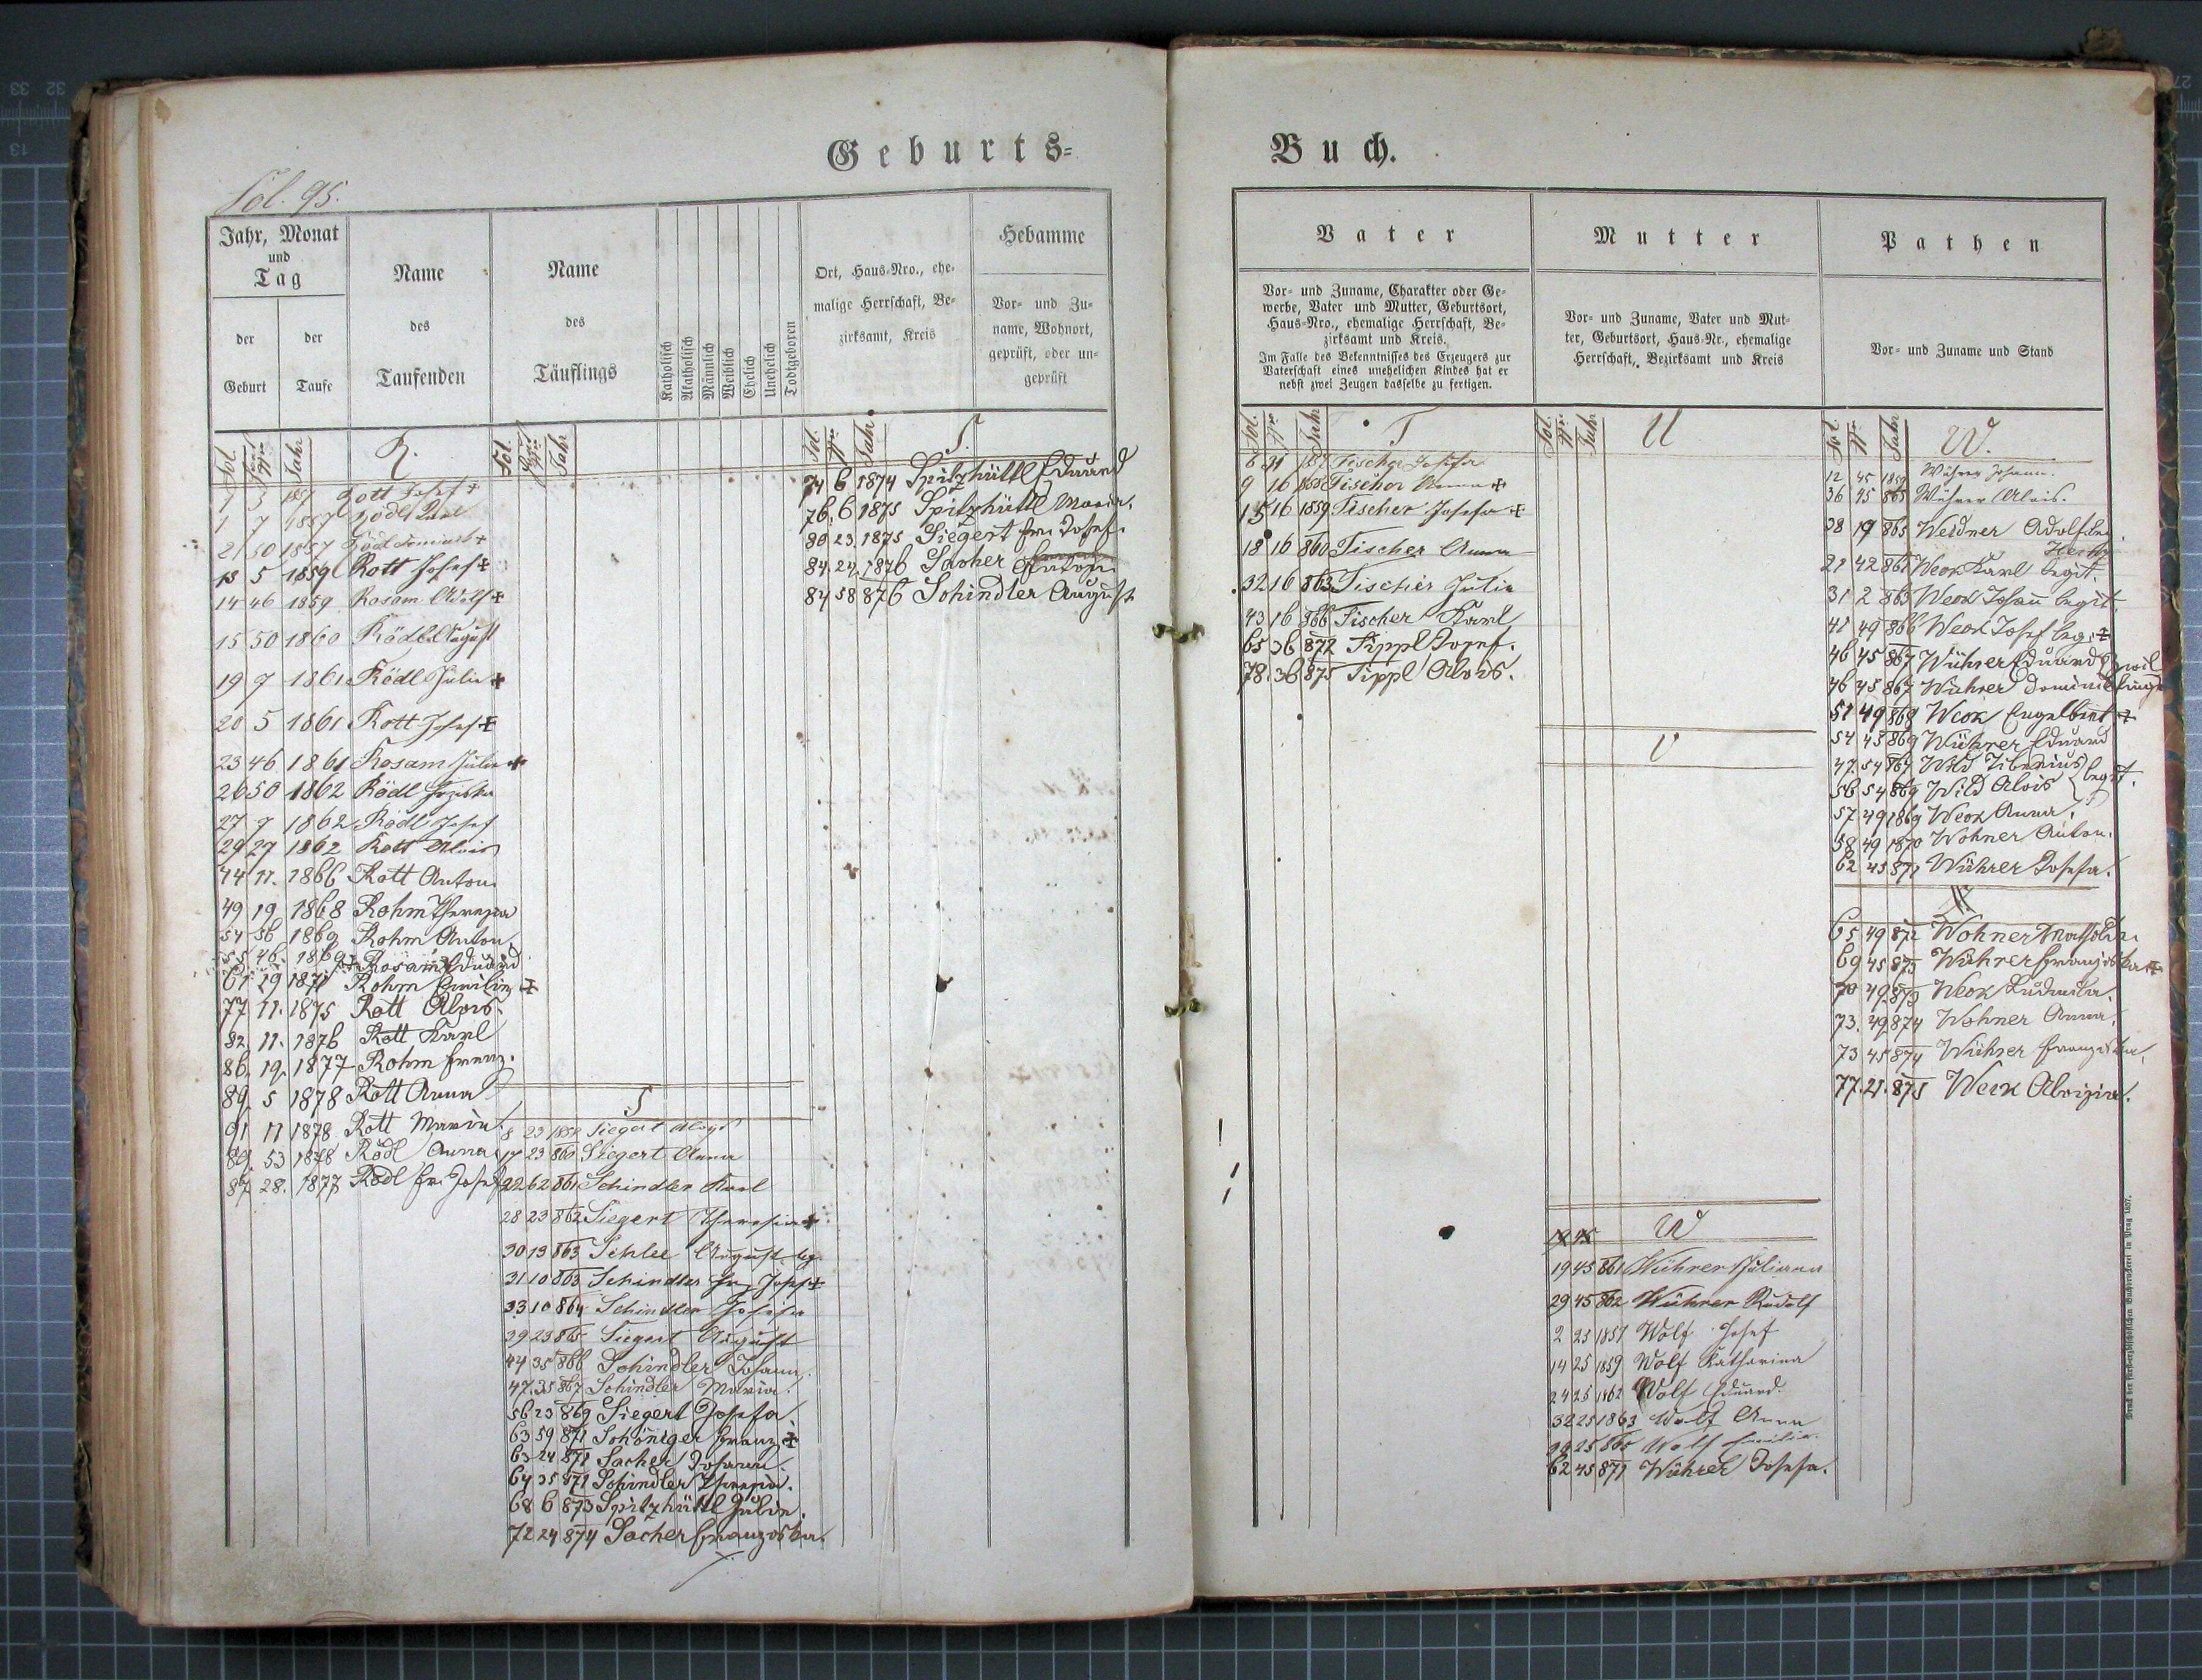 Geburts=
Buch.
Fol. 95.
Jahr, Monat
und
Tag
der
Geburt
der
Taufe
Name
des
Taufenden
Name
des
Täuflings
Katholisch
Akatholisch
Männlich
Weiblich
Ehelich
Unehelich
Todtgeboren
Ort, Haus-Nro., ehe-
malige Herrschaft, Be-
zirksamt, Kreis
Hebamme
Vor- und Zu-
name, Wohnort,
geprüft, oder un-
geprüft
Fol. Jahr R.
1 3 1857 Rott Josef +
1 7 1857 Rödl
2 50 1857 Rödl
13 5 1859 Rott Josef +
14 46 1859 Rosam Adolf +
15 50 1860 Rödl August
19 7 1861 Rödl Julie +
20 5 1861 Rott Josef +
23 46 1861 Rosam Julie +
26 50 1862 Rödl
27 7 1862 Rödl Josef
29 27 1862 Rott Alois
44 11. 1866 Rott Anton
49 19 1868 Rohm Theresia
54 56 1869 Rohm Anton
55 46. 1869 Rosam Eduard
61 29 1871 Rohm Emilie +
77 11. 1875 Rott Alois.
82 11. 1876 Rott Karl
86. 19. 1877 Rohm Franz.
89. 5 1878 Rott Anna
91 11 1878 Rott Maria
89. 53 1878 Rödl Anna
87 28. 1877 Rödl Fr. Josef
Fol. Jahr
S
8 23 1858 Siegert Aloys
17 23 860 Siegert Anna
22 62 861 Schindler Karl
28 23 862 Siegert Theresia +
30 13 863 Schlee August leg.
31 10 863 Schindler Josef +
33 10 864 Schindler Josefa
39 23 865 Siegert August
44 35 866 Schindler Johann.
47. 35 867 Schindler Maria.
56 23 869 Siegert Josefa
63 59 871 Schöniger Franz +
63 24 871 Sacher Johann.
64 35 871 Schindler Theresia.
68 6 873 Spitzhüttl Julie.
72 24 874 Sacher Franziska.
Fol. Jahr S.
74 6 1874 Spitzhüttl Eduard
76. 6 1875 Spitzhüttl Maria.
80 23. 1875 Siegert Fr. Josef.
84. 24. 1876 Sacher Anton
84 58 876 Schindler August
Vater
Vor- und Zuname, Charakter oder Ge-
werbe, Vater und Mutter, Geburtsort,
Haus-Nro., ehemalige Herrschaft, Be-
zirksamt und Kreis.
Im Falle des Bekenntnisses des Erzeugers zur
Vaterschaft eines unehelichen Kindes hat er
nebst zwei Zeugen dasselbe zu fertigen.
Mutter
Vor- und Zuname, Vater und Mut-
ter, Geburtsort, Haus-Nr., ehemalige
Herrschaft, Bezirksamt und Kreis
Pathen
Vor- und Zuname und Stand
Fol. Jahr T
Tischer Josefa
9 16 1858 Tischer Anna +
15 16 1859 Tischer Josefa +
18 16 860 Tischer Anna
32 16 863 Tischer Julie
43 16 866 Tischer Karl
65 36 872 Tippl Josef.
78. 36 875 Tippl Alois.
Fol. Jahr U
V
W
19 45 861 Wührer Juliana
29 45 862 Wührer Rudolf
2 25 1857 Wolf Josef
14 25 1859 Wolf Katharina
24 25 1862 Wolf Eduard.
32 25 1863 Wolf Anna
25 865 Wolf Emilie.
62 45 871 Wührer Josefa.
Fol. Jahr W.
12 45 1859 Wührer Johann.
36 45 865 Wührer Alois.
38 19 865 Weidner Adolf
42 861 Weck Karl legit.
31 2 863 Weck Johann legit.
41 49 866 Weck Josef leg. +
46 45 867 Wührer Eduard Zwil
46 45 867 Wührer Dominik linge
51 49 868 Weck Engelbert +
54 45 869 Wührer Eduard
47. 54 867 Wild Tiberius
56 54 869 Wild Alois } legit.
57 49 1869 Weck Anna.
58 49 1870 Wohner Anton.
62 45 871 Wührer Josefa.
65 49 872 Wohner Mathilde.
69 45 873 Wührer Franziska +
70 49 873 Weck Ludmila.
73. 49 874 Wohner Anna.
73 45 874 Wührer Franziska.
77. 21. 875 Weck Aloisia.
Druck der fürst-erzbischöflichen Buchdruckerei in Prag 1857.